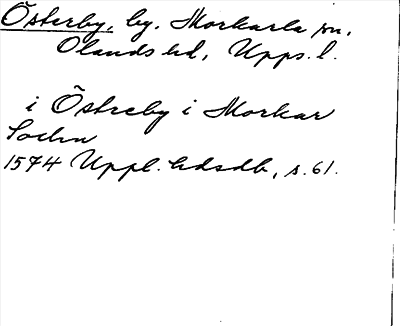 Österby, by, Morkarla sn,
Olands hd, Upps. l.
i Östreby i Morkar
Sochn
1574 Uppl. hdsdb, s. 61.